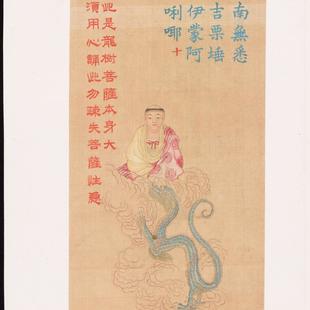 南無悉
吉栗埵
伊蒙阿
唎㖿十
此是龍樹菩薩本身大
須用心誦此勿疎失菩薩性急